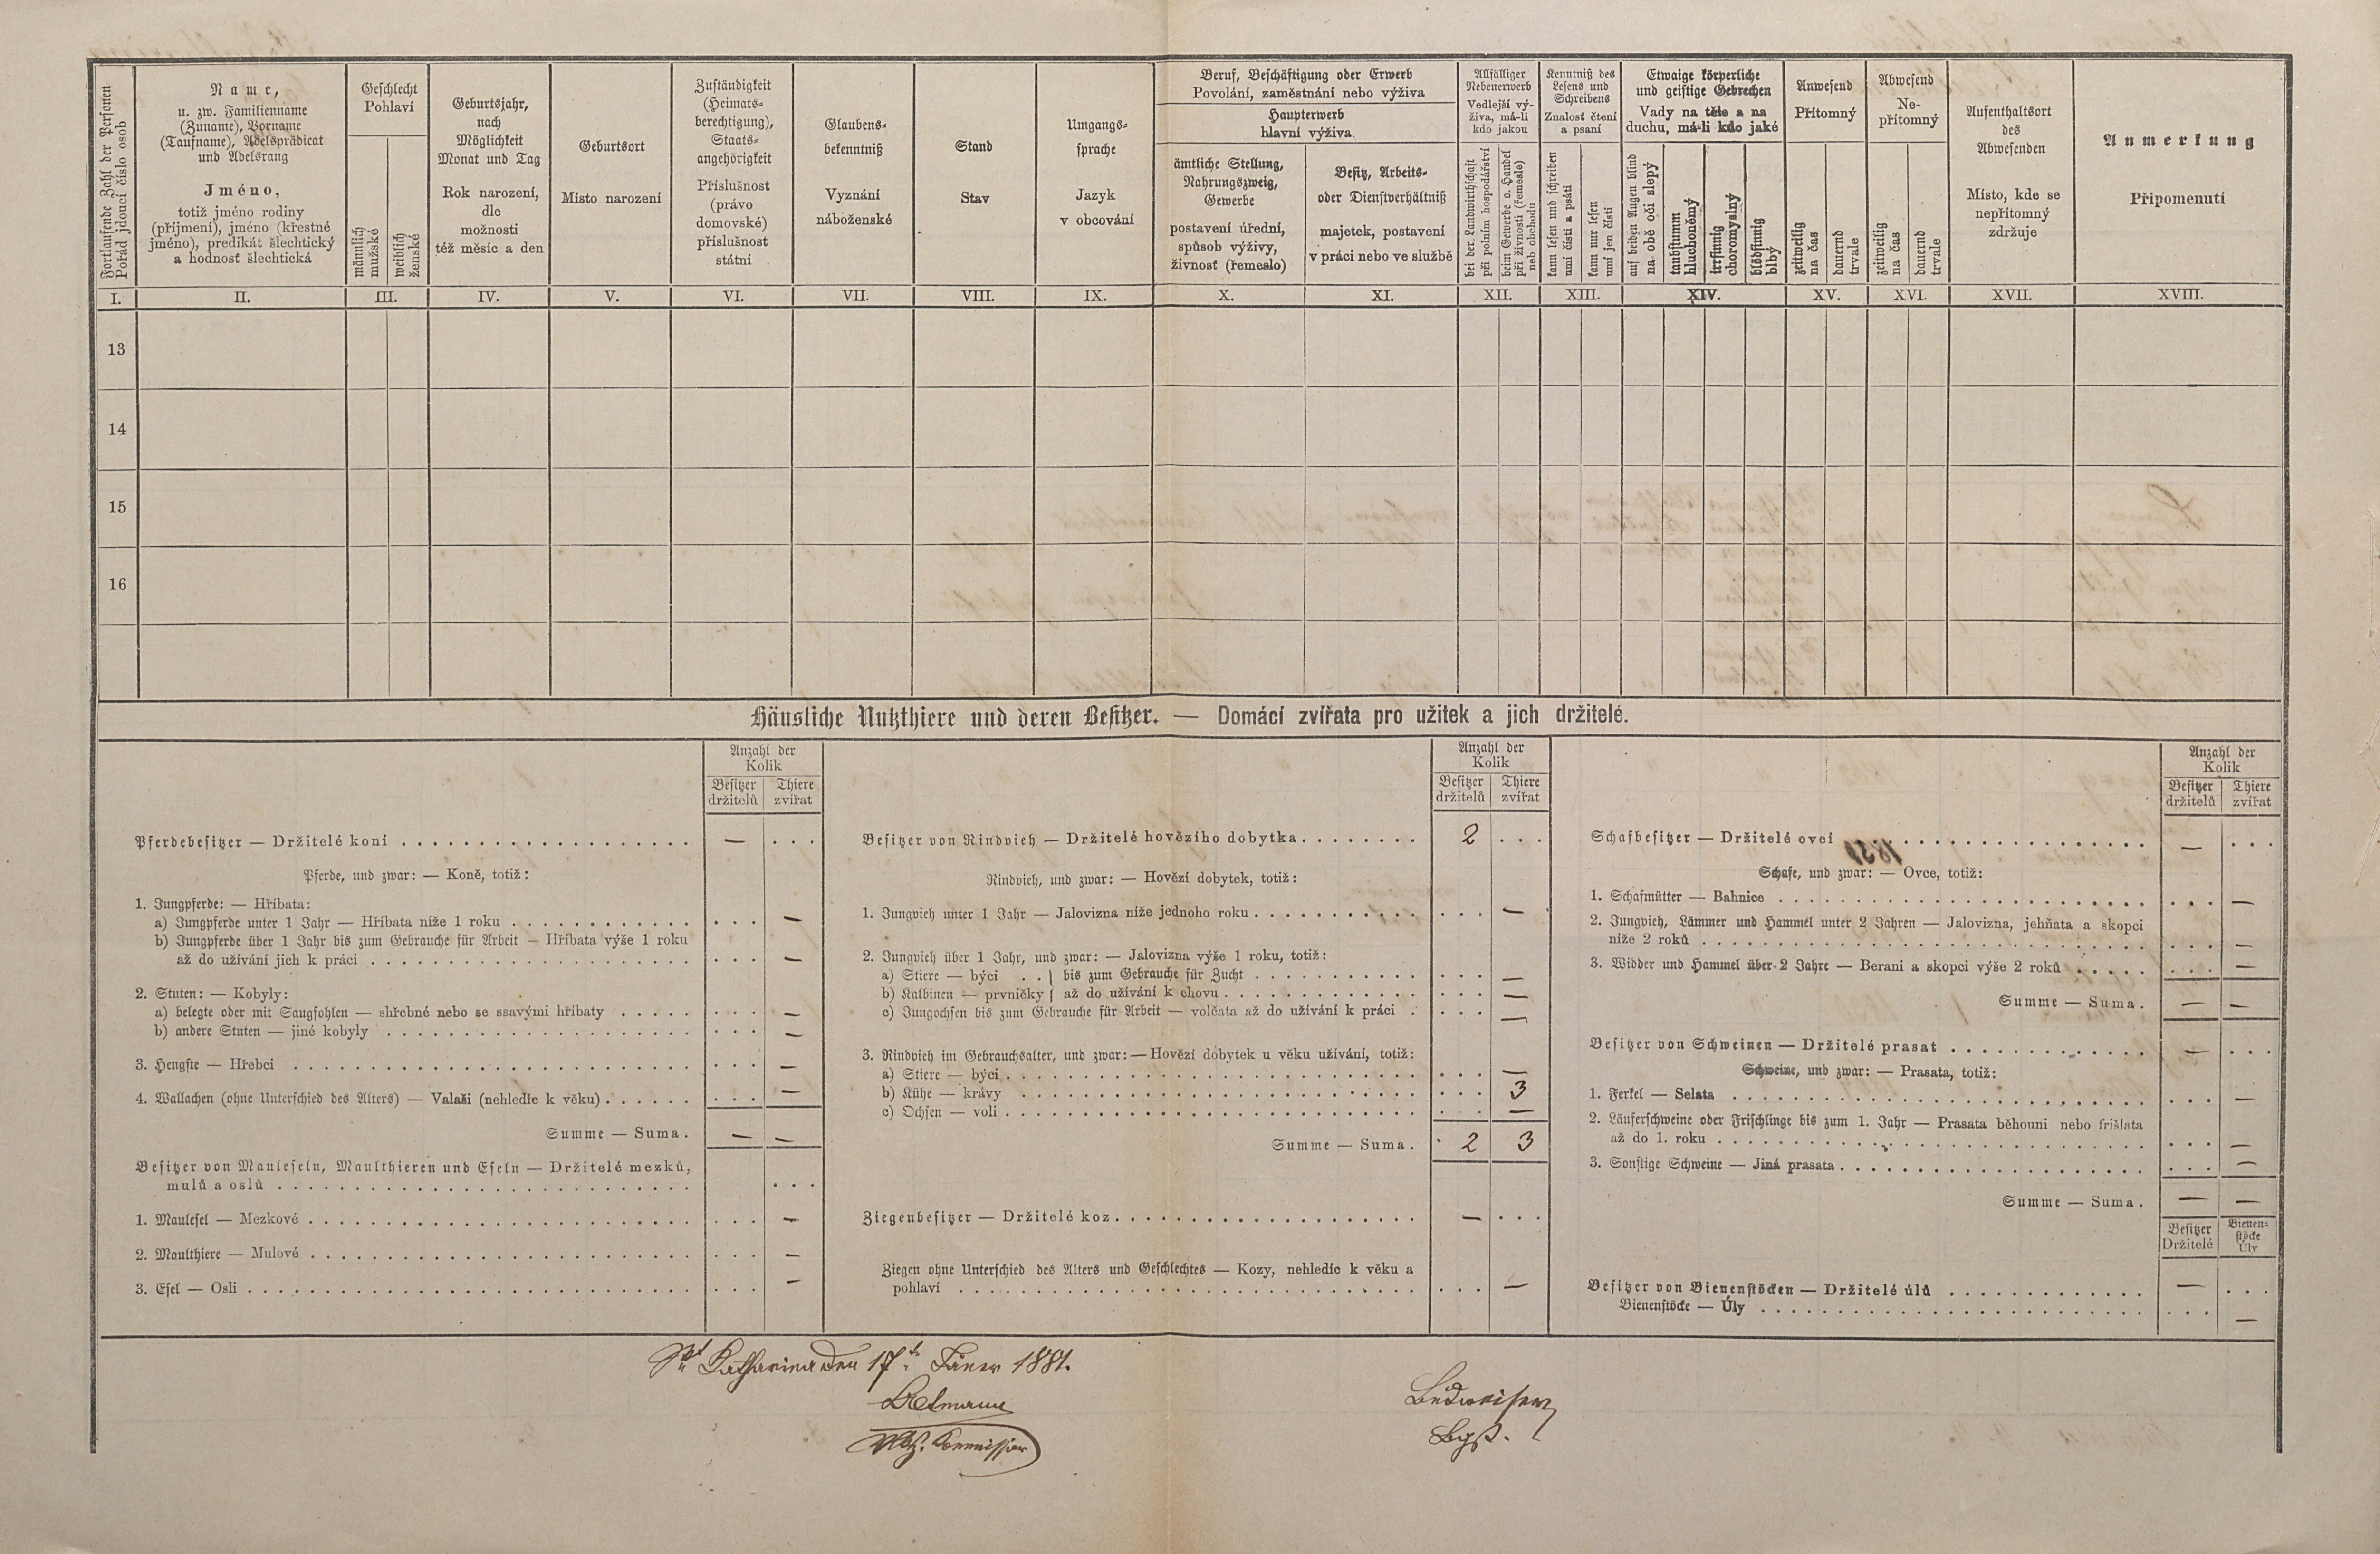 Fortlaufende Zahl der Personen
Pořád jdoucí číslo osob
Name,
u. zw. Familienname
(Zuname), Vorname
(Taufname), Adelsprädicat
und Adelsrang
Jméno,
totiž jméno rodiny
(příjmení), jméno (křestné
jméno), predikát šlechtický
a hodnosť šlechtická
Geschlecht
Pohlaví
männlich
mužské
weiblich
ženské
Geburtsjahr,
nach
Möglichkeit
Monat und Tag
Rok narození,
dle
možnosti
též měsíc a den
Geburtsort
Místo narození
Zuständigkeit
(Heimats-
berechtigung),
Staats-
angehörigkeit
Příslušnost
(právo
domovské)
příslušnost
státní
Glaubens-
bekenntniß
Vyznání
náboženské
Stand
Stav
Umgangs-
sprache
Jazyk
v obcování
Beruf, Beschäftigung oder Erwerb
Povolání, zaměstnání nebo výživa
Haupterwerb
hlavní výživa
ämtliche Stellung,
Nahrungszweig,
Gewerbe
postavení úřední,
spůsob výživy,
živnosť (řemeslo)
Besitz, Arbeits-
oder Dienstverhältniß
majetek, postavení
v práci nebo ve službě
Allfälliger
Nebenerwerb
Vedlejší vý-
živa, má-li
kdo jakou
bei der Landwirthschaft
při polním hospodářství
beim Gewerbe o. Handel
při živnosti (řemesle)
neb obchodu
Kenntniß des
Lesens und
Schreibens
Znalosť čtení
a psaní
kann lesen und schreiben
umí čísti a psáti
kann nur lesen
umí jen čísti
Etwaige körperliche
und geistige Gebrechen
Vady na těle a na
duchu, má-li kdo jaké
auf beiden Augen blind
na obě oči slepý
taubstumm
hluchoněmý
irrsinnig
choromyslný
blödsinnig
blbý
Anwesend
Přítomný
zeitweilig
na čas
dauernd
trvale
Abwesend
Ne-
přítomný
zeitweilig
na čas
dauernd
trvale
Aufenthaltsort
des
Abwesenden
Místo, kde se
nepřítomný
zdržuje
Anmerkung
Připomenutí
I. II. III. IV. V. VI. VII. VIII. IX. X. XI. XII. XIII. XIV. XV. XVI. XVII. XVIII.
13
14
15
16
Häusliche Nutzthiere und deren Besitzer. — Domácí zvířata pro užitek a jich držitelé.
Anzahl der
Kolik
Besitzer Thiere
držitelů zvířat
Pferdebesitzer — Držitelé koní . . . — . . .
Pferde, und zwar: — Koně, totiž:
1. Jungpferde: — Hříbata:
a) Jungpferde unter 1 Jahr — Hříbata níže 1 roku . . . —
b) Jungpferde über 1 Jahr bis zum Gebrauche für Arbeit — Hříbata výše 1 roku
až do užívání jich k práci . . . —
2. Stuten: — Kobyly:
a) belegte oder mit Saugfohlen — shřebné nebo se ssavými hříbaty . . . —
b) andere Stuten — jiné kobyly . . . —
3. Hengste — Hřebci . . . —
4. Wallachen (ohne Unterschied des Alters) — Valaši (nehledíc k věku) . . . —
Summe — Suma. — —
Besitzer von Mauleseln, Maulthieren und Eseln — Držitelé mezků,
mulů a oslů . . .
1. Maulesel — Mezkové . . . —
2. Maulthiere — Mulové . . . —
3. Esel — Osli . . . —
Anzahl der
Kolik
Besitzer Thiere
držitelů zvířat
Besitzer von Rindvieh — Držitelé hovězího dobytka . . . 2 . . .
Rindvieh, und zwar: — Hovězí dobytek, totiž:
1. Jungvieh unter 1 Jahr — Jalovizna níže jednoho roku . . . —
2. Jungvieh über 1 Jahr, und zwar: — Jalovizna výše 1 roku, totiž:
a) Stiere — býci . . } bis zum Gebrauche für Zucht . . . —
b) Kalbinen — prvničky } až do užívání k chovu . . . —
c) Jungochsen bis zum Gebrauche für Arbeit — volčata až do užívání k práci . . . —
3. Rindvieh im Gebrauchsalter, und zwar: — Hovězí dobytek u věku užívání, totiž:
a) Stiere — býci . . . —
b) Kühe — krávy . . . 3
c) Ochsen — voli . . . —
Summe — Suma. 2 3
Ziegenbesitzer — Držitelé koz . . . — . . .
Ziegen ohne Unterschied des Alters und Geschlechtes — Kozy, nehledíc k věku a
pohlaví . . . —
Anzahl der
Kolik
Besitzer Thiere
držitelů zvířat
Schafbesitzer — Držitelé ovcí . . . — . . .
Schafe, und zwar: — Ovce, totiž:
1. Schafmütter — Bahnice . . . —
2. Jungvieh, Lämmer und Hammel unter 2 Jahren — Jalovizna, jehňata a skopci
níže 2 roků . . . —
3. Widder und Hammel über 2 Jahre — Berani a skopci výše 2 roků . . . —
Summe — Suma. — —
Besitzer von Schweinen — Držitelé prasat . . . — . . .
Schweine, und zwar: — Prasata, totiž:
1. Ferkel — Selata . . . —
2. Läuferschweine oder Frischlinge bis zum 1. Jahr — Prasata běhouni nebo frišlata
až do 1. roku . . . —
3. Sonstige Schweine — Jiná prasata . . . —
Summe — Suma. — —
Besitzer Bienen-
Držitelé stöcke
Úly
Besitzer von Bienenstöcken — Držitelé úlů . . . — . . .
Bienenstöcke — Úly . . . —
St Katharina den 17t. Jäner 1881.
Kommissär